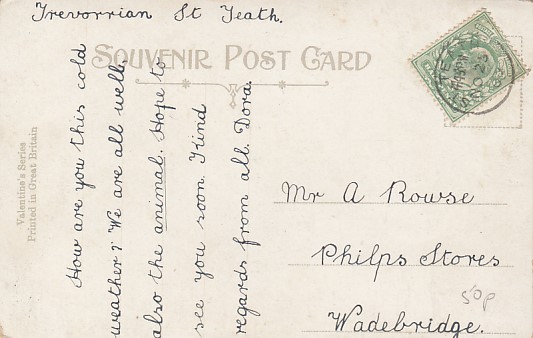 Trevorrian St Teath.
SOUVENIR POST CARD
Valentine's Series
Printed in Great Britain
How are you this cold
weather? We are all well,
also the animal. Hope to
see you soon Kind
regards from all. Dora.
Mr A Rowse
Philps Stores
Wadebridge.
50p